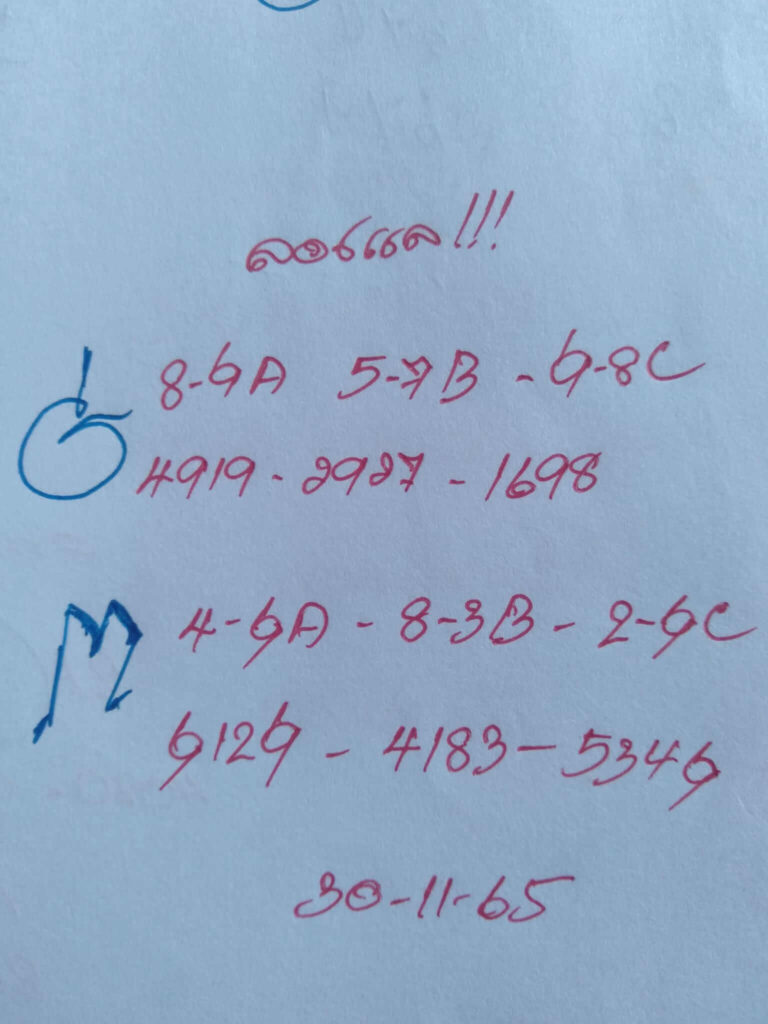 ลองแล!!!
8-9A 5-7B - 9-8C
4919 - 2927 - 1698
M 4-9A - 8-3B - 2-9C
9129 - 4183 - 5349
30-11-65